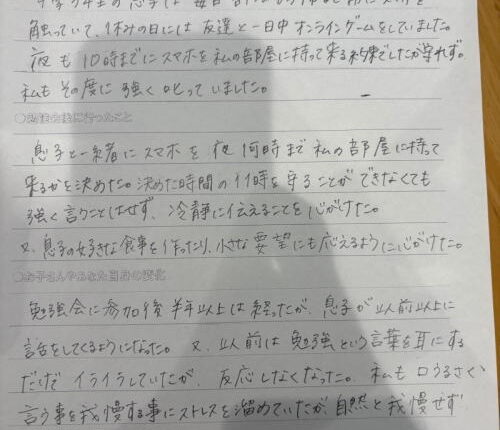 触っていて、休みの日には友達と一日中オンラインゲームをしていました。
夜も10時までにスマホを私の部屋に持って来る約束でしたが守れず。
私もその度に強く叱っていました。
息子と一緒にスマホを夜何時まで私の部屋に持って
来るかを決めた。決めた時間の11時を守ることができなくても
強く言うことはせず、冷静に伝えることを心がけた。
又、息子の好きな食事を作ったり、小さな要望にも応えるように心がけた。
○お子さんやあなた自身の変化
勉強会に参加後半年以上は経ったが、息子が以前以上に
話をしてくるようになった。又、以前は勉強という言葉を耳にする
だけでイライラしていたが、反応しなくなった。私も口うるさく
言う事を我慢する事にストレスを溜めていたが、自然と我慢せず